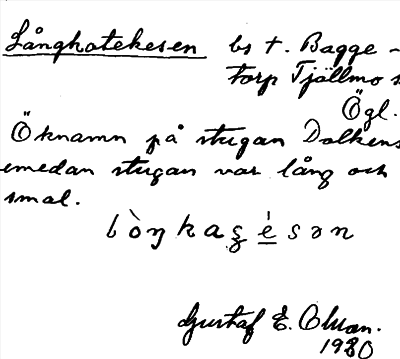 Långkatekesen bs t. Bagge-
torp Tjällmo s
Ögl.
Öknamn på stugan Dalkens
emedan stugan var lång och
smal.
Gustaf E. Olson.
1930